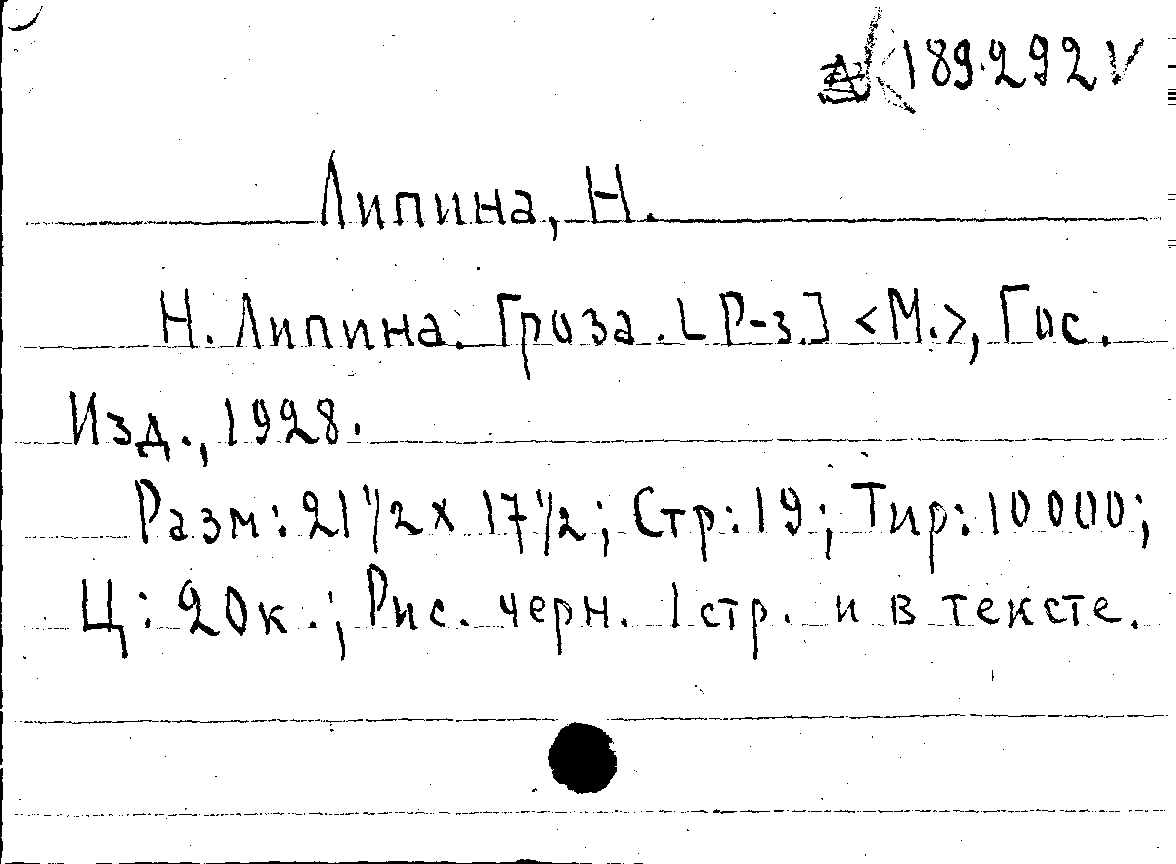 189.292 V
Липина, Н.
Н. Липина. Гроза. [Р-з.] <М.>, Гос.
Изд., 1928.
Разм: 21 1/2 х 17 1/2; Стр: 19; Тир: 10000;
Ц: 20к.; Рис. черн. 1 стр. и в тексте.